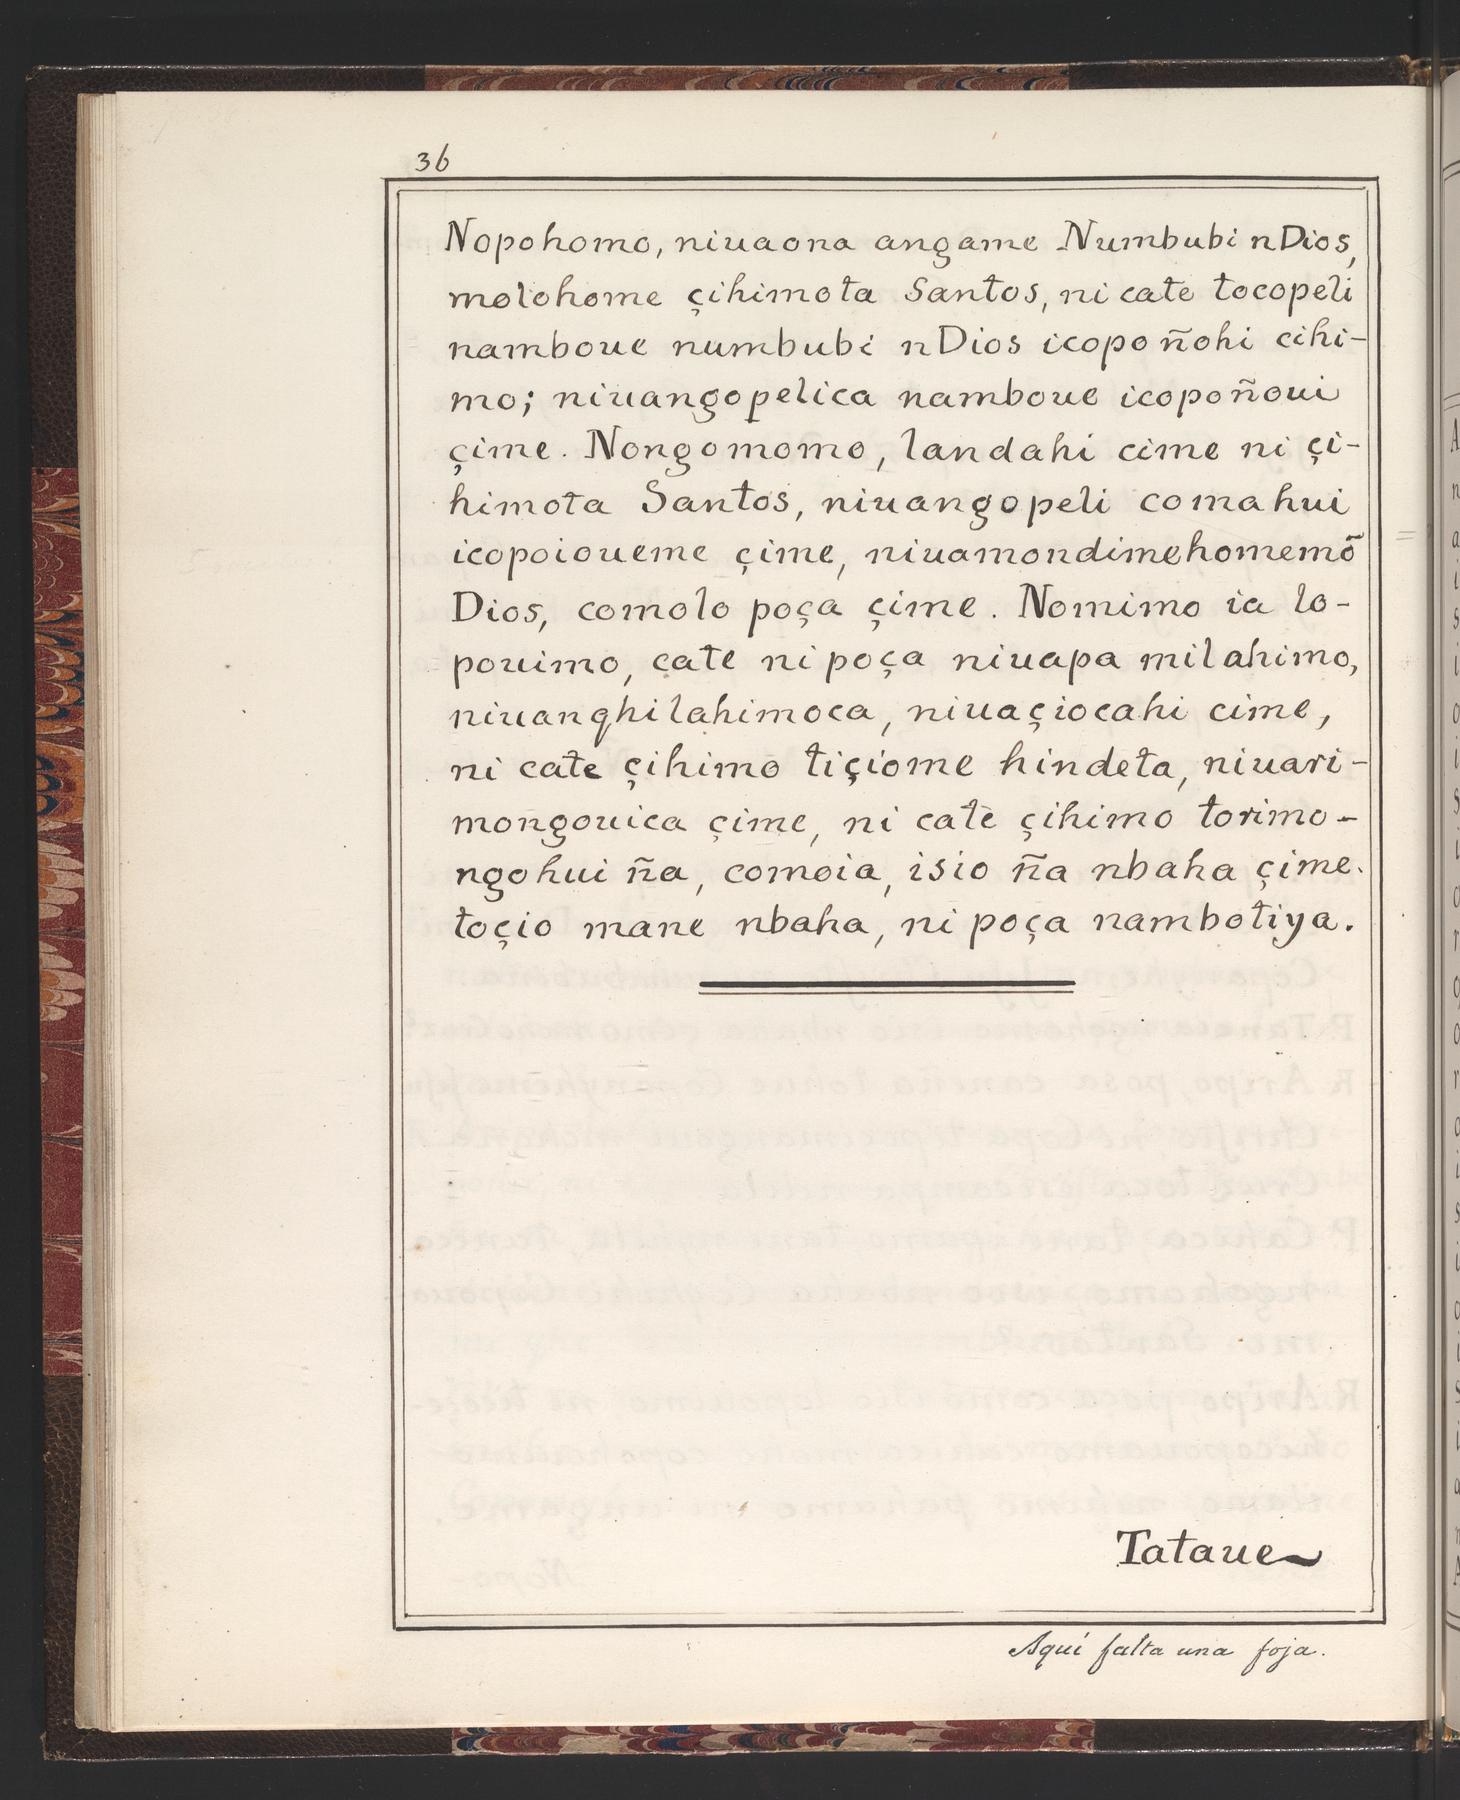 36
Nopohomo, niuaona angame Numbubi nDios,
molohome çihimota Santos, ni cate tocopeli
namboue numbubi nDios icopo ñohi cihi-
mo; niuangopelica namboue icopoñoui
çime. Nongomomo, landahi cime ni çi-
himota Santos, niuangopeli comahui
icopoioueme çime, niuamondimehomemõ
Dios, comolo poça çime. Nomimo ia lo-
pouimo, cate ni poça niuapa milahimo,
niuanghilahimoca, niuaçiocahi cime,
ni cate çihimo tiçiome hindeta, niuari-
mongouica çime, ni cate çihimo torimo-
ngohui ña, comoia, isio ña nbaha çime.
toçio mane nbaha, ni poça nambotiya.
Tataue
Aquí falta una foja.